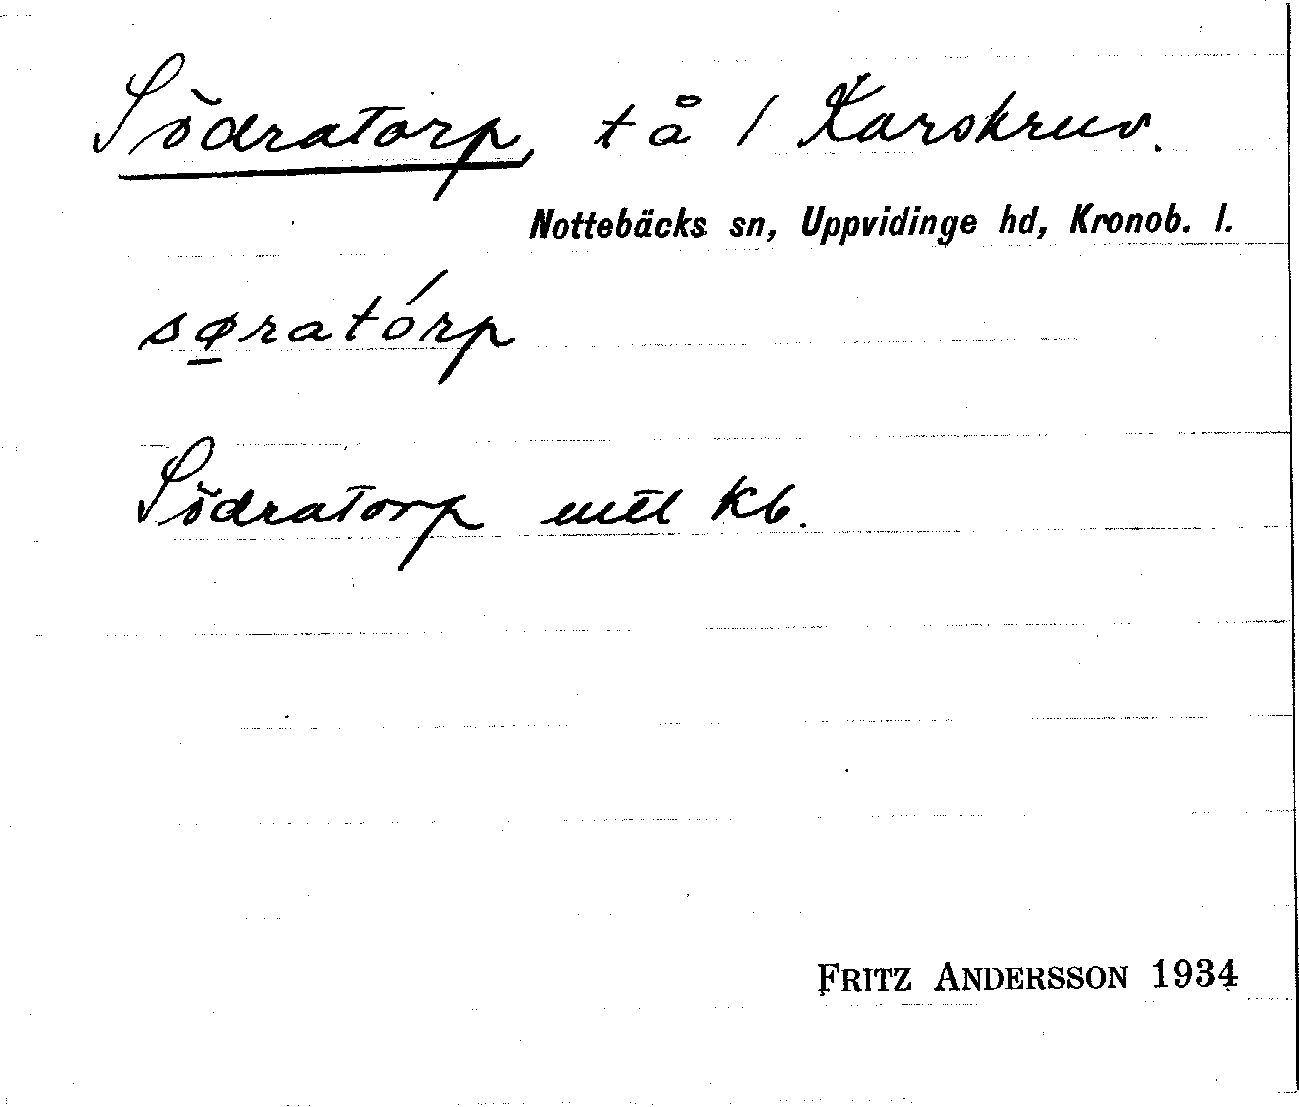 Södratorp, tå / Karskruv.
Nottebäcks sn, Uppvidinge hd, Kronob. l.
sø̱ratórp
Södratorp mtl Kb.
FRITZ ANDERSSON 1934